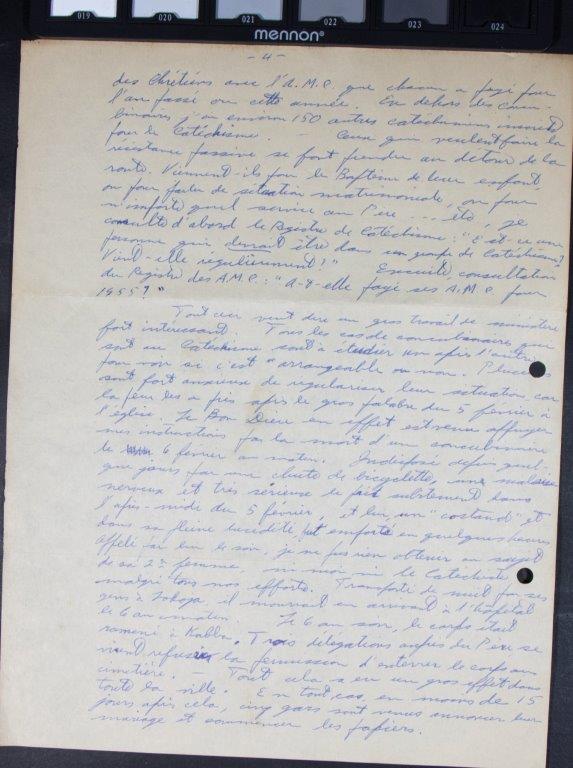 019 020 021 022 023 024
mennon®
- 4 -
des Chrétiens avec l'A.M.C. que chacun a payé pour
l'an passé ou cette année. En dehors des
j'ai environ 150 autres catéchumènes inscrits
pour le Catéchisme. — Ceux qui veulent faire la
résistance passive se font prendre au détour de la
route. Viennent-ils pour le Baptême de leur enfant,
ou pour parler de situation matrimoniale, ou pour
n'importe quel service au Père ... etc, je
consulte d'abord le Registre de Catéchisme: "Est-ce une
personne qui devrait être dans un groupe de Catéchisme?
Vient-elle régulièrement?" Ensuite consultation
du Registre des A.M.C.: "A-t-elle payé ses A.M.C. pour
1955?"
Tout ceci veut dire un gros travail de ministère
fort intéressant. Tous les cas de concubinaires qui
sont au Catéchisme sont à étudier un après l'autre
pour voir si c'est "arrangeable ou non. Plusieurs
sont fort anxieux de régulariser leur situation, car
la peur les a pris après le gros palabre du 5 février à
l'église. Le Bon Dieu en effet est venu appuyer
mes instructions par la mort d'un concubinaire
le 6 février au matin. Indisposé depuis quel-
que jours par une chute de bicyclette, une malaise
nerveux et très sérieuse le prit subitement dans
l'après-midi du 5 février, et lui, un "costaud" et
dans sa pleine lucidité, fut emporté en quelques heures
appelé par lui le soir, je ne pus rien obtenir au sujet
de sa 2e femme, ni moi ni le Catéchiste
malgré tous nos efforts. Transporté de nuit par ses
gens à Lokoja, il mourrait en arrivant à l'hôpital
le 6 au matin. Le 6 au soir, le corps était
ramené à Kabba. Trois délégations auprès du Père se
virent refuser la permission d'enterrer le corps au
cimetière. — Tout cela a eu un gros effet dans
toute la ville. En tout cas, en moins de 15
jours après cela, cinq gars sont venus annoncer leur
mariage et commencer les papiers.